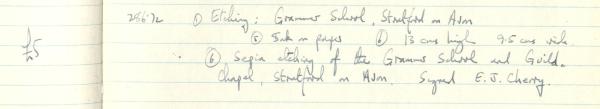 28.6.72 ① Etching: Grammar School, Stratford on Avon
⑤ Ink on paper ⑥ 13 cms high 9.5 cms wide
⑥ Sepia etching of the Grammar School and Guild
Chapel, Stratford on Avon. Signed E.J. Cherry.